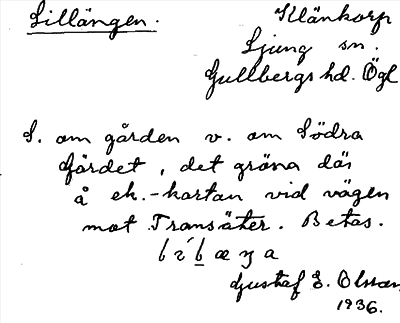 Lillängen.
Klänkorp
Ljung sn.
Gullbergs hd. Ögl
S. om gården v. om Södra
Gärdet, det gröna där
å ek.-kartan vid vägen
mot Transäter. Betas.
Gustaf E. Olsson
1936.